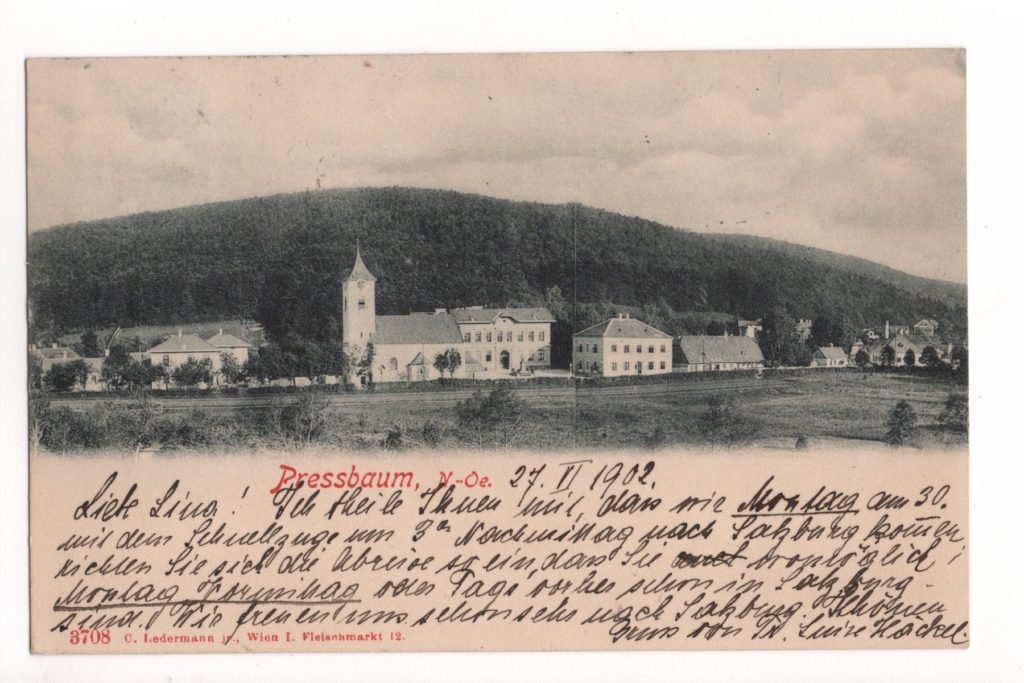 Pressbaum, N-Oe.
27. VI 1902.
Liebe Lina! Ich theile Ihnen mit, dass wir Montag am 30.
mit dem Schnellzuge um 3 Nachmittag nach Salzburg kommen
richten Sie sich die Abreise so ein, dass Sie womöglich
Montag Vormittag oder Tags vorher schon in Salzburg
sind. Wir freuen uns schon sehr nach Salzburg. Schönen
Gruss von Luise Häckel.
3708 C. Ledermann jr., Wien I. Fleischmarkt 12.